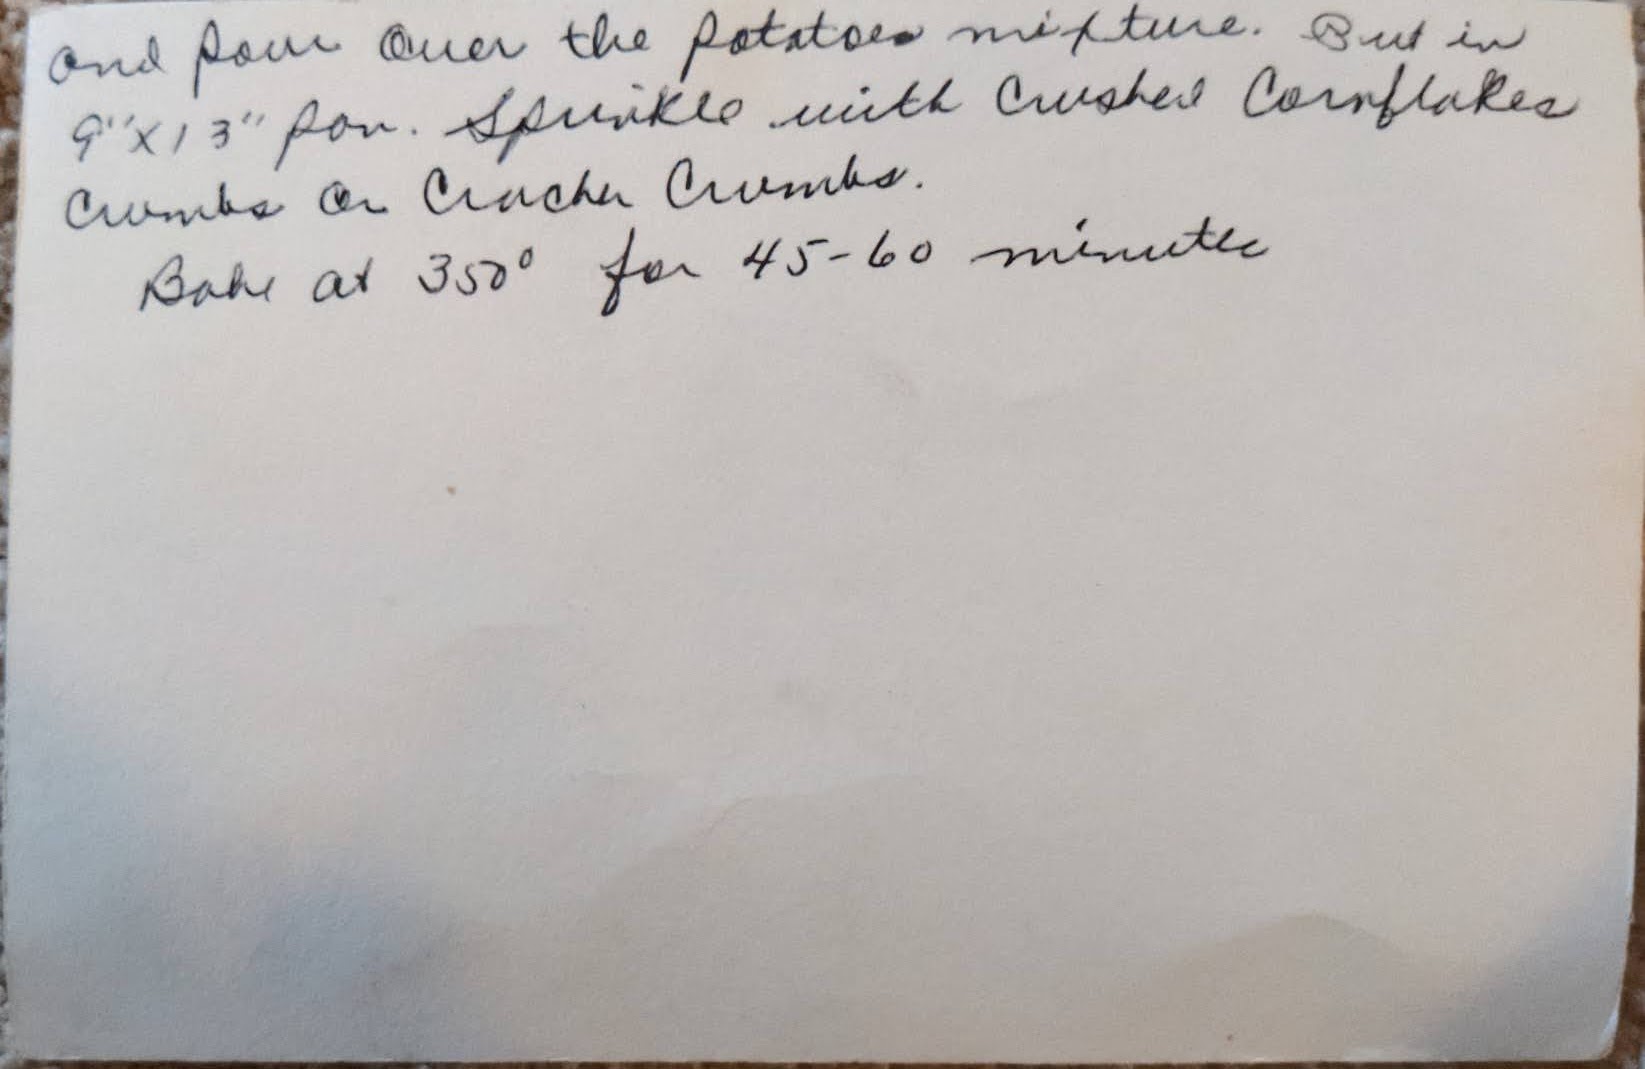 and pour over the potatoes mixture. Put in
9"x13" pan. Sprinkle with crushed Cornflakes
Crumbs or Cracker Crumbs.
Bake at 350° for 45-60 minutes